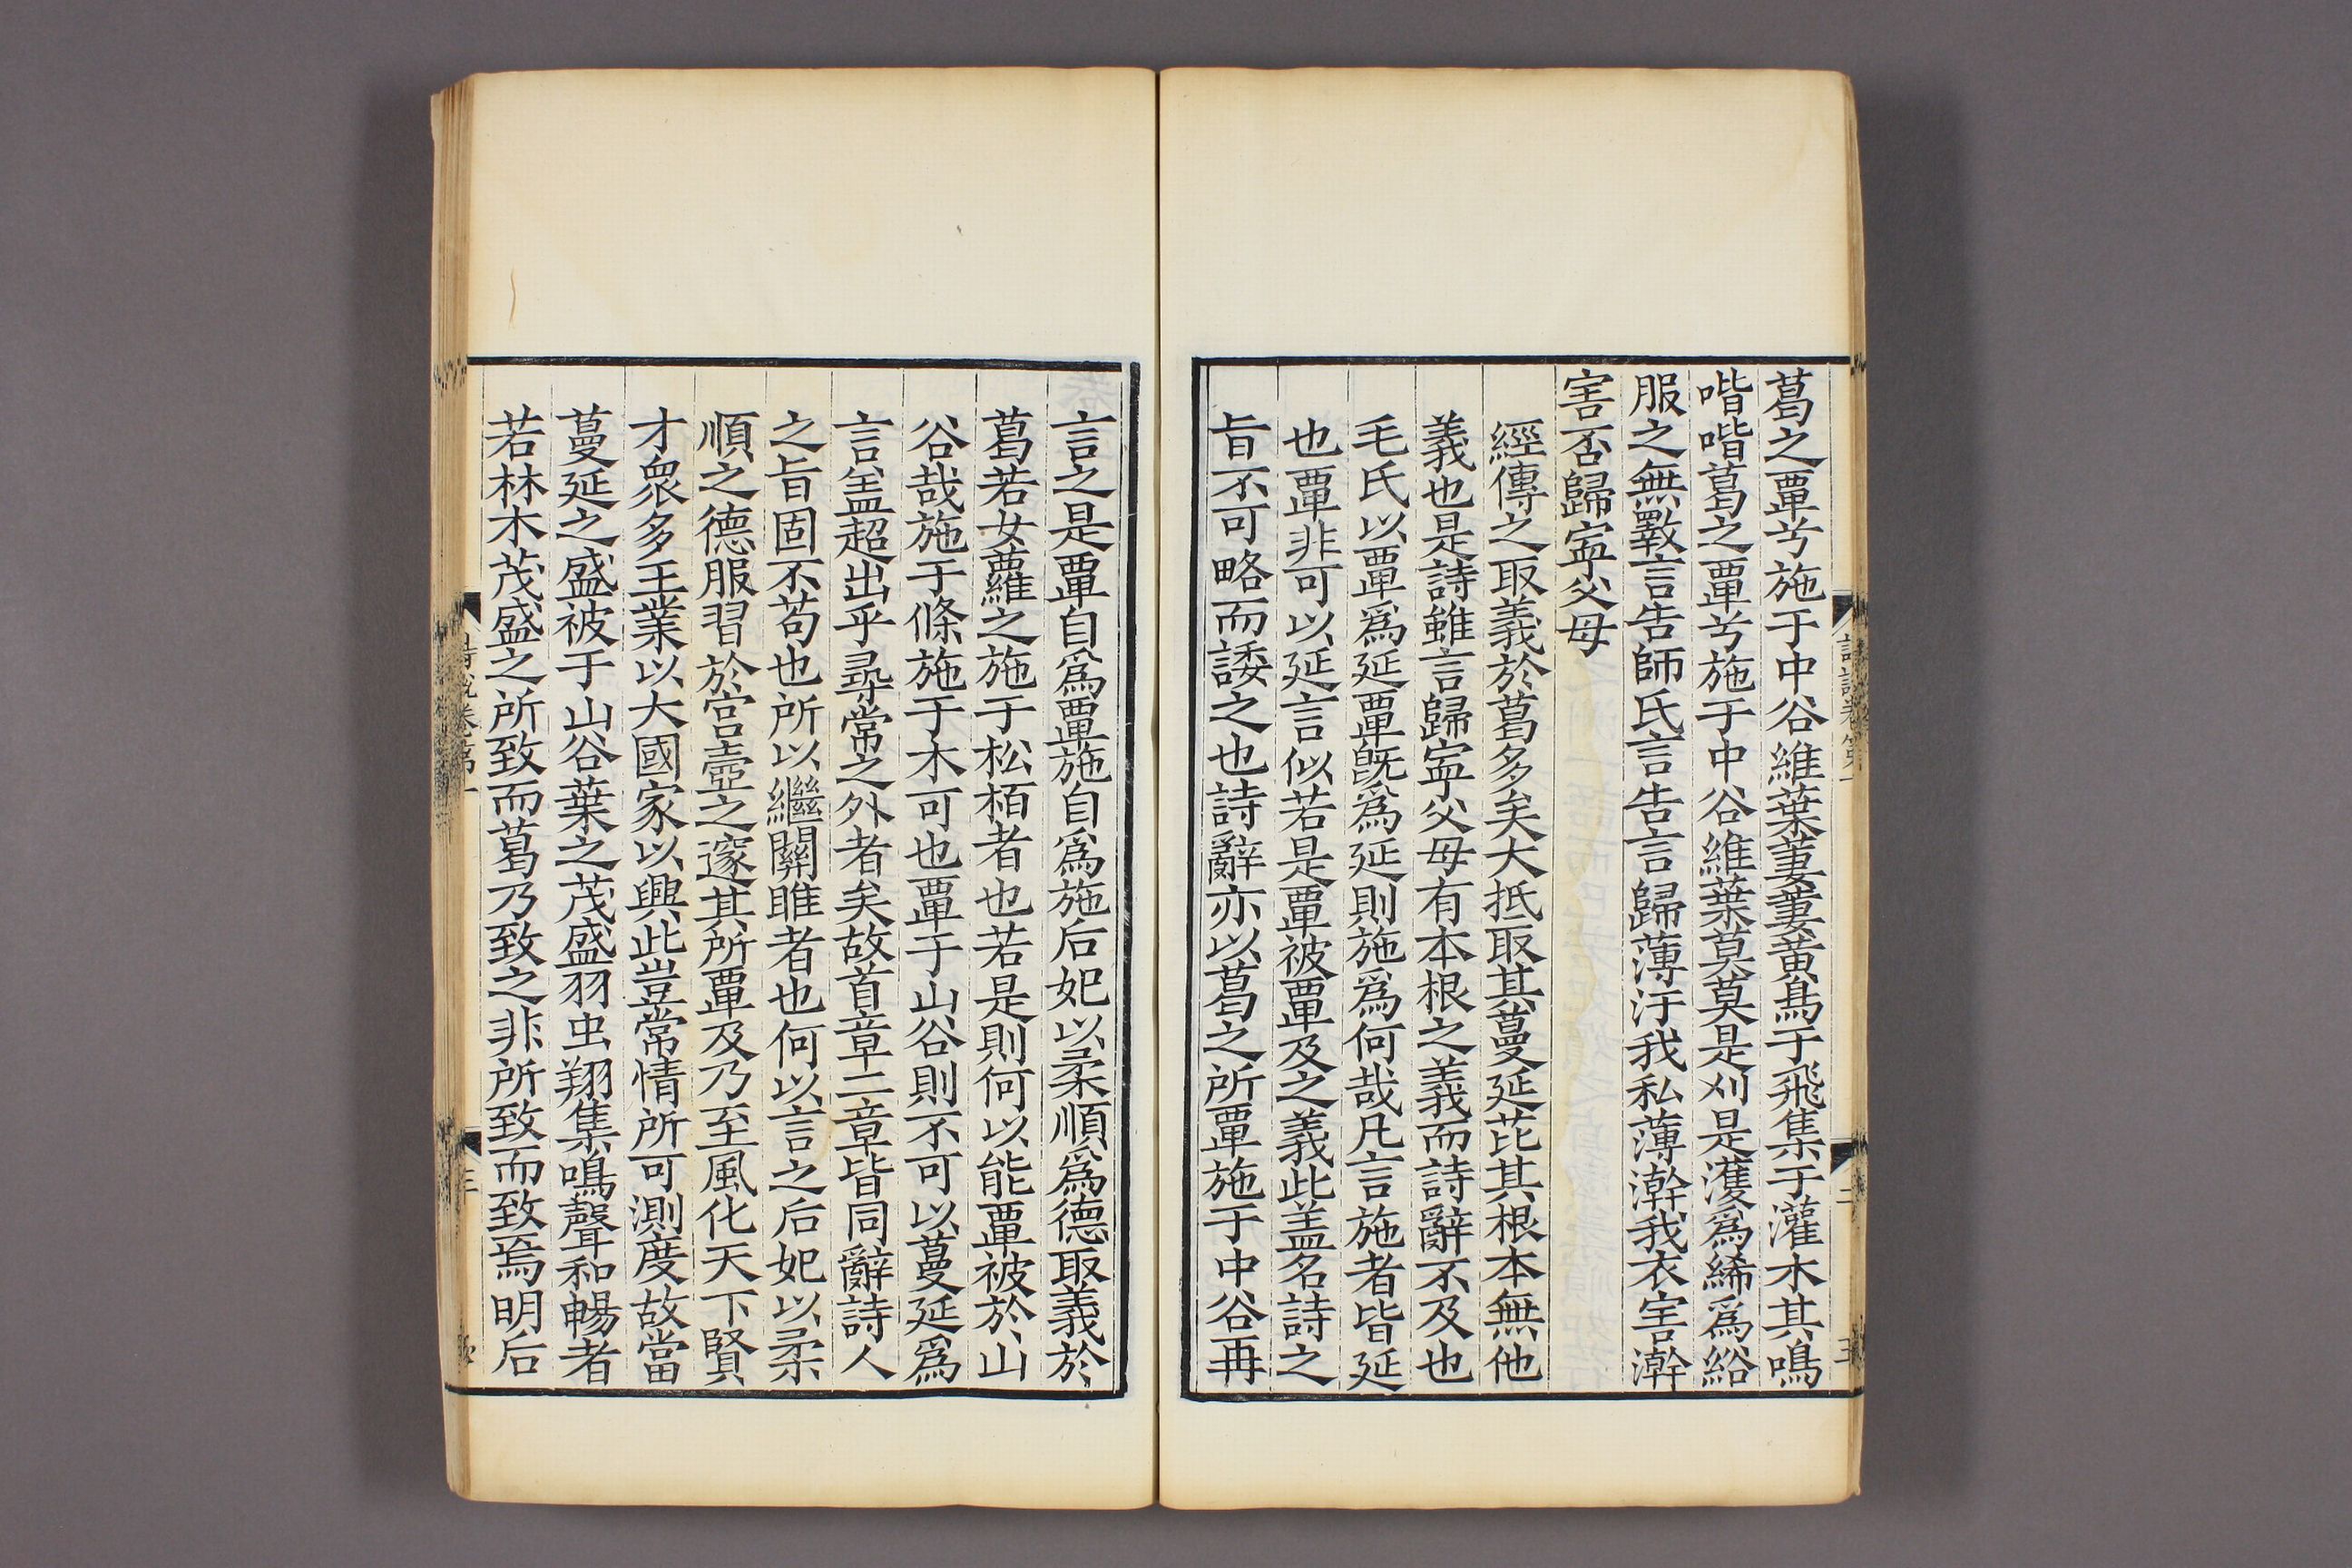 葛之覃兮施于中谷維葉萋萋黃鳥于飛集于灌木其鳴
喈喈葛之覃兮施于中谷維葉莫莫是刈是濩爲絺爲綌
服之無斁言告師氏言告言歸薄汙我私薄澣我衣害澣
害否歸寧父母
經傳之取義於葛多矣大抵取其蔓延芘其根本無他
義也是詩雖言歸寧父母有本根之義而詩辭不及也
毛氏以覃爲延覃旣爲延則施爲何哉凡言施者皆延
也覃非可以延言似若是覃被覃及之義此盖名詩之
旨不可略而諉之也詩辭亦以葛之所覃施于中谷再
言之是覃自爲覃施自爲施后妃以柔順爲德取義於
葛若女蘿之施于松栢者也若是則何以能覃被於山
谷哉施于條施于木可也覃于山谷則不可以蔓延爲
言盖超出乎尋常之外者矣故首章二章皆同辭詩人
之旨固不苟也所以繼關雎者也何以言之后妃以柔
順之德服習於宫壼之邃其所覃及乃至風化天下賢
才衆多王業以大國家以興此豈常情所可測度故當
蔓延之盛被于山谷葉之茂盛羽虫翔集鳴聲和暢者
若林木茂盛之所致而葛乃致之非所致而致焉明后
詩說卷第一
三